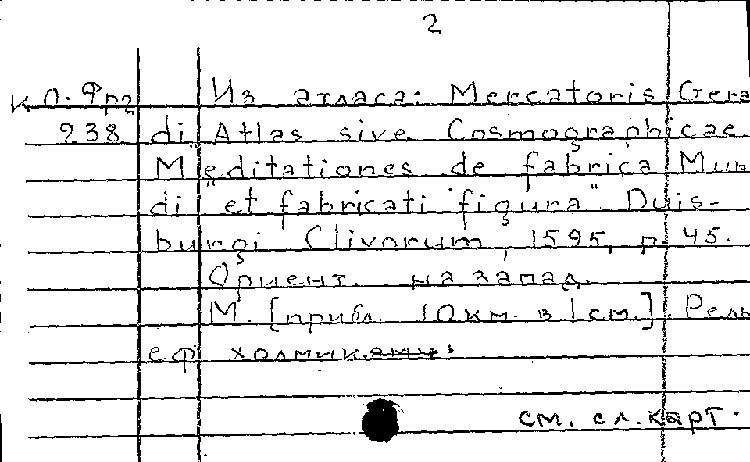 2
К О. Фрг Из атласа: Mercatoris Gera
938 di Atlas sive Cosmographicae
Meditationes de fabrica Mun
di et fabricati figura" Duis-
burgi Clivorum, 1595, p. 45.
Ориент. на запад.
М. [прибл. 10км. в 1см.] Рель
еф холмиками.
см. сл. карт.